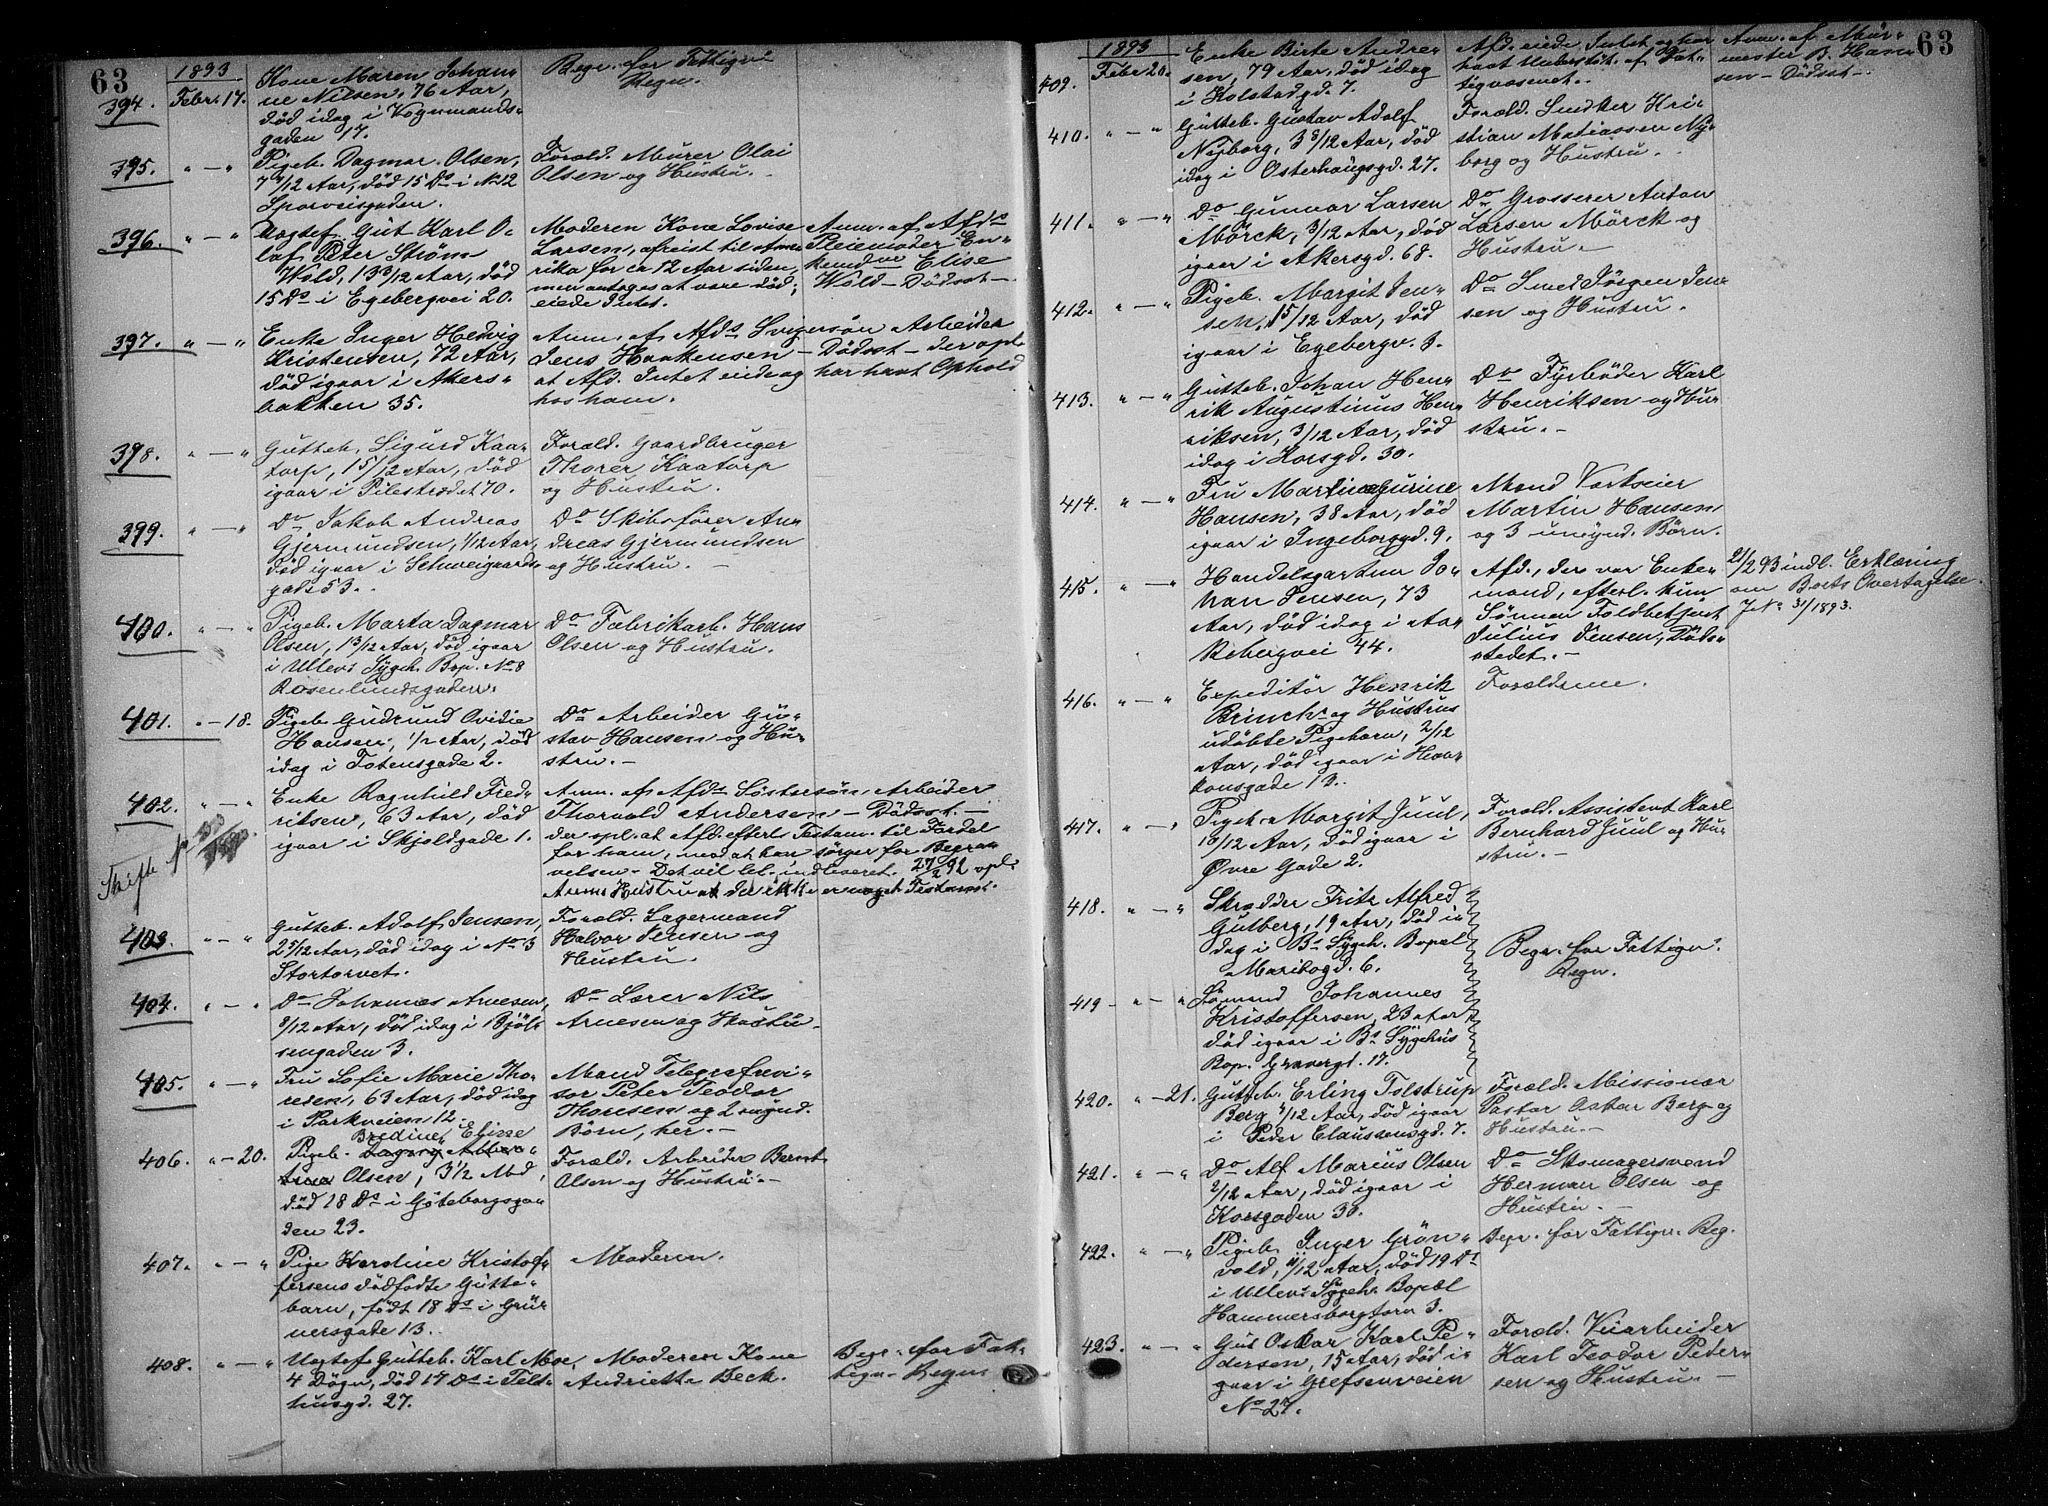 63
1893
394. Febr. 17. Kone Maren Johan-
ne Nilsen, 76 Aar,
død idag i Vognmands-
gaden 17.
Begr. for Fattigv:
Regn.
395. " — " Pigeb. Dagmar Olsen,
7/12 Aar, død 15 Ds i No 12
Sporveisgaden.
Foræld. Murer Olai
Olsen og Hustru.
396. " — " Uægtef. Gut Karl O-
laf Peter Strøm
Wold, 13 3/12 Aar, død
15 Ds i Egebergvei 20.
Moderen Kone Lovise
Larsen, afreist til Ame-
rika for ca 12 Aar siden,
men antages at være død;
eiede Intet.
Anm. af Afds
Pleiemoder En-
kemdme Elise
Wold — Dødsst —
397. " — " Enke Inger Hedvig
Kristensen, 72 Aar,
død igaar i Akers-
bakken 35.
Anm. af Afds Svigersøn Arbeider
Jens Haakensen — Dødsst — der opl.
at Afd. Intet eiede og har havt Ophold
hos ham.
398. " — " Gutteb. Sigurd Kaa-
torp, 15/12 Aar, død
igaar i Pilestrædet 70.
Foræld. Gaardbruger
Thorer Kaatorp
og Hustru.
399. " — " Do Jakob Andreas
Gjermundsen, 1/12 Aar,
død igaar i Schweigaards-
gade 53.
Do Skibsfører An-
dreas Gjermundsen
og Hustru. —
400. " — " Pigeb. Marta Dagmar
Olsen, 13/12 Aar, død igaar
i Ullevs Sygeh. Bop. No 8
Rosenlundsgaden.
Do Fabrikarb. Hans
Olsen og Hustru.
401. " — 18. Pigeb. Gudrund Ovidie
Hansen, 1/2 Aar, død
idag i Totensgade 2.
Do Arbeider Gu-
stav Hansen og Hu-
stru. —
402. " — " Enke Ragnhild Fred-
riksen, 63 Aar, død
igaar i Skjoldgade 1.
Anm. af Afds Søstersøn Arbeider
Thorvald Andersen — Dødsst. —
der opl. at Afd. efterl. Testam. til Fordel
for ham, mod at han sørger for Begra-
velsen. — Det vil bl. indleveret. 27/2 92 opl.
Anms Hustru at der ikke er noget Testamt.
Skifte
403. " — " Gutteb. Adolf Jensen,
2 5/12 Aar, død idag i No 3
Stortorvet.
Foræld. Lagermand
Halvor Jensen og
Hustru.
404. " — " Do Johannes Arnesen,
8/12 Aar, død idag i Bjøl-
sengaden 3.
Do Lærer Nils
Arnesen og Hustru.
405. " — " Fru Sofie Marie Tho-
resen, 63 Aar, død idag
i Parkveien 12.
Mand Telegrafrevi-
sor Peter Teodor
Thoresen og 2 mynd.
Børn, her. —
406. " — 20. Pigeb. Bredine Elisse
Olsen, 3 1/2 Md,
død 18 Ds i Gøteborgsga-
den 23.
Foræld. Arbeider Bernt
Olsen og Hustru. —
407. " — " Pige Karoline Kristof-
fersens dødfødte Gutte-
barn, født 18 Ds i Grü-
nersgade 13.
Moderen.
408. " — " Uægtef. Gutteb. Karl Moe,
4 Døgn, død 17 Ds i Telt-
husgd. 27.
Moderen Kone
Andriette Beck.
Begr. for Fat-
tigv. Regn
63
1893
409. Febr 20. Enke Birte Andre-
sen, 79 Aar, død idag
i Kolstadgd. 7.
Afd. eiede Intet og har
havt Understøt. af Fat-
tigvæsenet.
Anm. af Mur-
mester B. Han-
sen — Dødsst —
410. " — " Gutteb. Gustav Adolf
Nyborg, 3 8/12 Aar, død
idag i Osterhaugsgd. 27.
Foræld. Snedker Kri-
stian Matiassen Ny-
borg og Hustru.
411. " — " Do Gunnar Larsen
Mörck, 3/12 Aar, død
igaar i Akersgd. 68.
Do Grosserer Anton
Larsen Mörck og
Hustru. —
412. " — " Pigeb. Margit Jen-
sen, 15/12 Aar, død
igaar i Egebergv. 3.
Do Smed Jørgen Jen-
sen og Hustru.
413. " — " Gutteb. Johan Hen-
rik Augustinus Hen-
riksen, 3/12 Aar, død
idag i Korsgd. 30.
Do Fyrbøder Karl
Henriksen og Hu-
stru. —
414. " — " Fru Martine Gurine
Hansen, 38 Aar, død
igaar i Ingeborggd. 9.
Mand
Martin Hansen
og 3 umynd. Børn.
415. " — " Handelsgartner Jo-
han Jensen, 73
Aar, død idag i Aa-
kebergvei 44.
Afd., der var Enke-
mand, efterl. kun
Sønnen Toldbetjent
Julius Jensen, Døds-
stedet. —
21/2 93 indl. Erklæring
om Boets Overtagelse.
J No 31/1893.
416. " — " Expeditør Henrik
Brinchs og Hustrus
udøbte Pigebarn, 2/12
Aar, død igaar i Haa-
konsgade 13.
Forældrene.
417. " — " Pigeb. Margit Juul,
10/12 Aar, død igaar i
Øvre Gade 2.
Foræld. Assistent Karl
Bernhard Juul og Hu-
stru. —
418. " — " Skrædder Fritz Alfred
Gulberg, 19 Aar, død i-
dag i Bs Sygeh. Bopæl
Maribogd. 6.
Begr. for Fattigv.
Regn.
419 — " — " Sømand Johannes
Kristoffersen, 23 Aar
død igaar i Bs Sygehus
Bop. Grønvergt. 17.
420. " — 21. Gutteb. Erling Tolstrup
Berg 4/12 Aar, død igaar
i Peder Claussønsgd. 7.
Foræld. Missionær
Pastor Oskar Berg og
Hustru. —
421. " — " Do Alf Marius Olsen
2/12 Aar, død igaar i
Korsgaden 30.
Do Skomagersvend
Herman Olsen og
Hustru. —
422. " — " Pigeb. Inger Grøn-
vold, 11/12 Aar, død 19 Ds
i Ullevs Sygeh. Bopæl
Hammersborgtorv 3.
Begr. for Fattigv. Reg.
423. " — " Gut Oskar Karl Pe-
dersen, 15 Aar, død i-
gaar i Grefsenveien
No 27.
Foræld. Veiarbeider
Karl Teodor Peder-
sen og Hustru. —